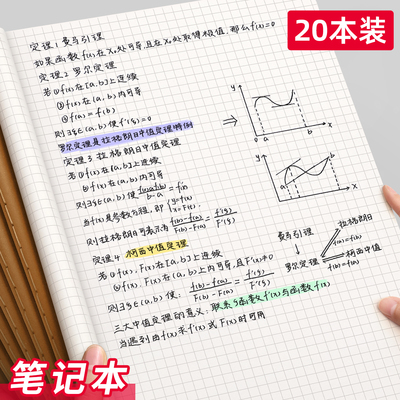 20本装
定理1 费马引理
如果函数f(x)在x₀处可导,且在x₀处取得极值,那么f'(x)=0
定理2 罗尔定理
若①f(x)在[a,b]上连续
②f(x)在(a,b)内可导
③f(a)=f(b)
则∃ξ∈(a,b)使f'(ξ)=0
罗尔定理是拉格朗日中值定理特例
定理3 拉格朗日中值定理
若①f(x)在[a,b]上连续
②f(x)在(a,b)内可导
则∃ξ∈(a,b)使
当f(x)是参数方程,即
则拉格朗日可表示为 f(b)-f(a)/F(b)-F(a)=f'(ξ)/F'(ξ)
定理4 柯西中值定理
若①f(x),F(x)在[a,b]上连续
②f(x),F(x)在(a,b)上可导,且F'(x)≠0
则∃ξ∈(a,b)使: f(b)-f(a)/F(b)-F(a)=f'(ξ)/F'(ξ)
三大中值定理的意义:联系了函数f'(x)与函数f(x)
当遇到由f(x)求f'(x)或F(x)时可用
y
0
a
b
x
y
a
b
x
费马引理
罗尔定理
拉格朗日
f(a)=f(b)
柯西中值
f(b)=f(a)
笔记本